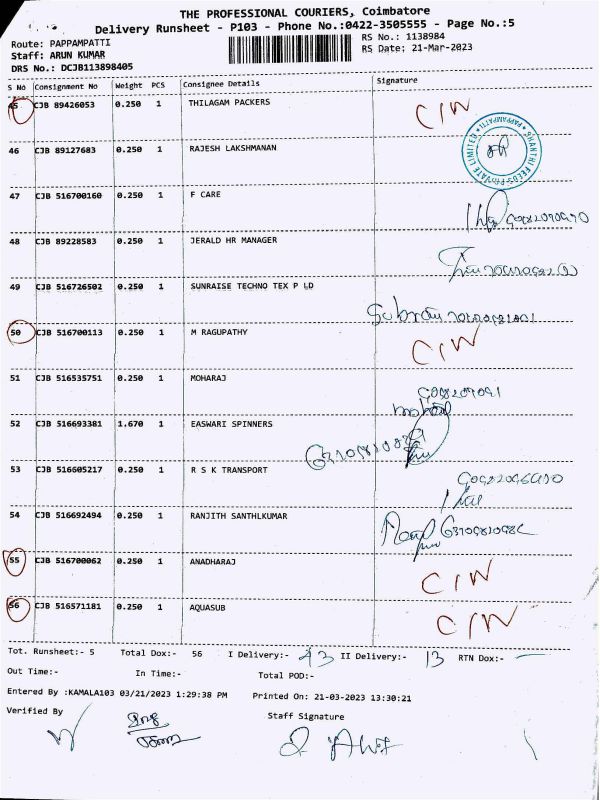 THE PROFESSIONAL COURIERS, Coimbatore
Delivery Runsheet - P103 - Phone No.:0422-3505555 - Page No.:5
Route: PAPPAMPATTI
RS No.: 1138984
Staff: ARUN KUMAR
RS Date: 21-Mar-2023
DRS No.: DCJB113898405
S No Consignment No Weight PCS Consignee Details Signature
45 CJB 89426053 0.250 1 THILAGAM PACKERS C/W
SHANTHI FEEDS PRIVATE LIMITED PAPPAMPATTI
46 CJB 89127683 0.250 1 RAJESH LAKSHMANAN
47 CJB 516700160 0.250 1 F CARE
48 CJB 89228583 0.250 1 JERALD HR MANAGER
49 CJB 516726502 0.250 1 SUNRAISE TECHNO TEX P LD
50 CJB 516700113 0.250 1 M RAGUPATHY C/W
51 CJB 516535751 0.250 1 MOHARAJ
52 CJB 516693381 1.670 1 EASWARI SPINNERS
53 CJB 516605217 0.250 1 R S K TRANSPORT
54 CJB 516692494 0.250 1 RANJITH SANTHLKUMAR
55 CJB 516700062 0.250 1 ANADHARAJ C/W
56 CJB 516571181 0.250 1 AQUASUB C/W
Tot. Runsheet:- 5 Total Dox:- 56 I Delivery:- 43 II Delivery:- 13 RTN Dox:- —
Out Time:- In Time:- Total POD:-
Entered By :KAMALA103 03/21/2023 1:29:38 PM Printed On: 21-03-2023 13:30:21
Verified By Staff Signature